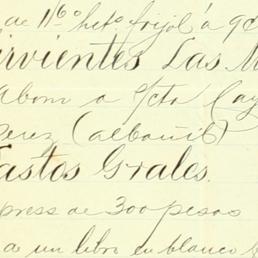 de 11 6º hetº frijol á 9c
irvientes Las M
Abono a %cta Cay
Perez (albañil)
astos Grales.
press de 300 pesos
a un libro en blanco